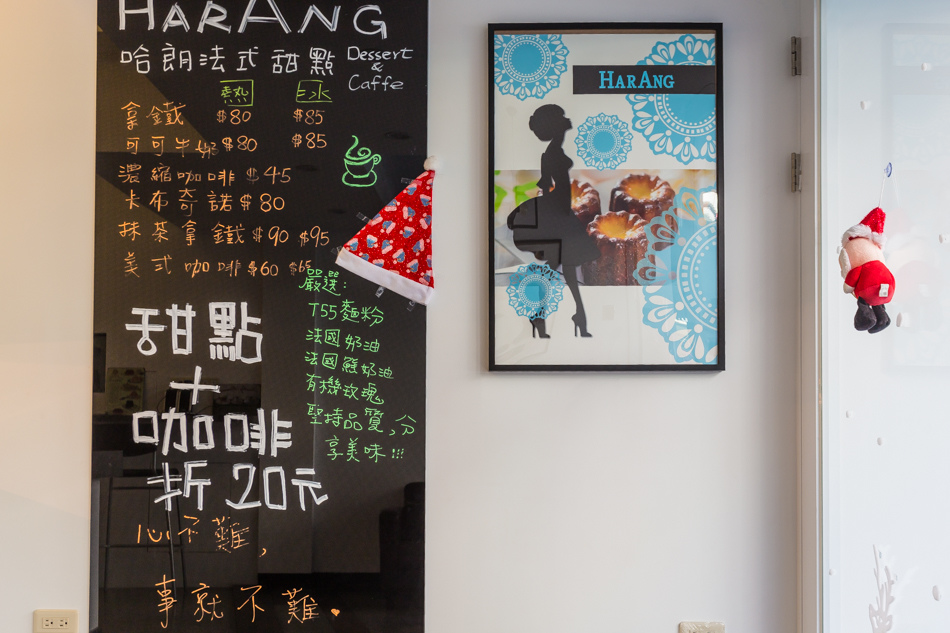 HARANG
哈朗法式甜點
Dessert
&
Caffe
熱 冰
拿鐵 $80 $85
可可牛奶 $80 $85
濃縮咖啡 $45
卡布奇諾 $80
抹茶拿鐵 $90 $95
美式咖啡 $60 $65
嚴選:
T55麵粉
法國奶油
法國鮮奶油
有機玫瑰
堅持品質,分
享美味!!!
甜點
+
咖啡
折20元
心不難,
事就不難。
HARANG